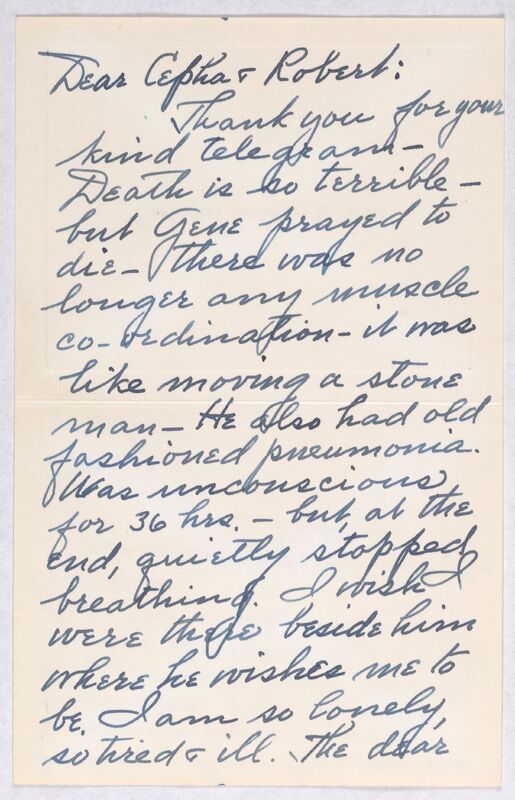 Dear Cepha & Robert:
Thank you for your
kind telegram —
Death is so terrible —
but Gene prayed to
die — there was no
longer any muscle
co-ordination — it was
like moving a stone
man — He also had old
fashioned pneumonia.
Was unconscious
for 36 hrs. — but, at the
end, quietly stopped
breathing. I wish I
were there beside him
where he wishes me to
be. I am so lonely,
so tired & ill. The dear